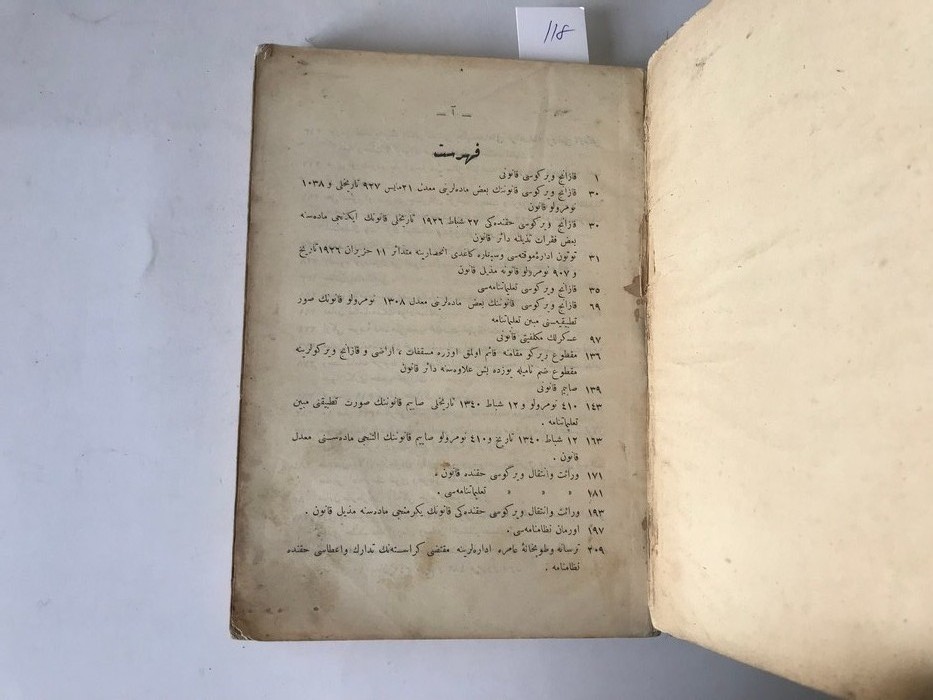 118
— آ —
فهرست
١ قازانج ويركوسى قانونى
٣٠ قازانج ويركوسى قانوننك بعض ماده‌لرينى معدل ٢١مايس ٩٢٧ تاريخلى و ١٠٣٨
نومرولو قانون
٣٠ قازانج ويركوسى حقنده‌كى ٢٧ شباط ١٩٢٦ تاريخلى قانونك ايكنجى ماده‌سنه
بعض فقرات تذييلنه دائر قانون
٣١ توتون ادارۀ موقته‌سى وسيغاره كاغدى انحصارينه متدائر ١١ حزيران ١٩٢٦تاريخ
و ٩٠٧ نومرولو قانونه مذيل قانون
٣٥ قازانج ويركوسى تعليماتنامه‌سى
٦٩ قازانج ويركوسى قانوننك بعض ماده‌لرينى معدل ١٣٠٨ نومرولو قانونك صور
تطبيقيه‌سنى مبين تعليماتنامه
٩٧ عسكرلك مكلفيتى قانونى
١٣٦ مقطوع ويركو مقامنه قائم اولمق اوزره مسقفات ، اراضى و قازانج ويركولرينه
مقطوع ضم ناميله يوزده بش علاوه‌سنه دائر قانون
١٣٩ صايم قانونى
١٤٣ ٤١٠ نومرولو و ١٢ شباط ١٣٤٠ تاريخلى صايم قانوننك صورت تطبيقنى مبين
تعليماتنامه .
١٦٣ ١٢ شباط ١٣٤٠ تاريخ و ٤١٠ نومرولو صايم قانوننك التنجى ماده‌سنى معدل
قانون .
١٧١ وراثت وانتقال ويركوسى حقنده قانون .
١٨١ » » » تعليماتنامه‌سى .
١٩٣ وراثت وانتقال ويركوسى حقنده‌كى قانونك يكرمنجى ماده‌سنه مذيل قانون .
١٩٧ اورمان نظامنامه‌سى .
٢٠٩ ترسانه وطوبخانۀ عامره اداره‌لرينه مقتضى كراسته‌نك تدارك واعطاسى حقنده
نظامنامه .